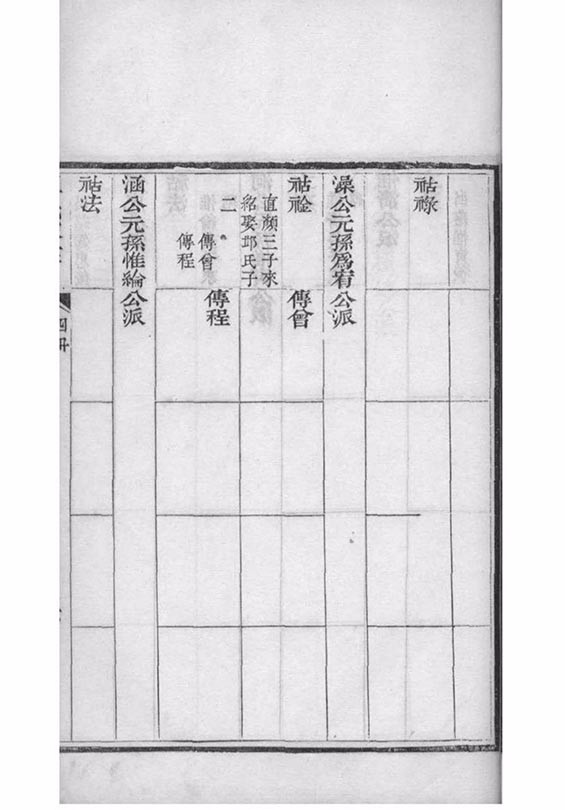 祜祿
澡公元孫為宥公派
祜㷉
直顏三子來
紹娶邱氏子
二
傳曾
傳程
傳曾
傳程
涵公元孫惟綸公派
祜法
四卅